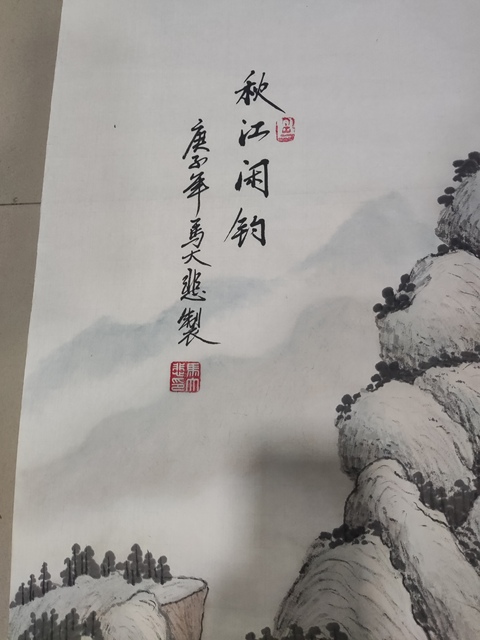 秋江闲钓
庚子年馬大悲製
馬大悲印